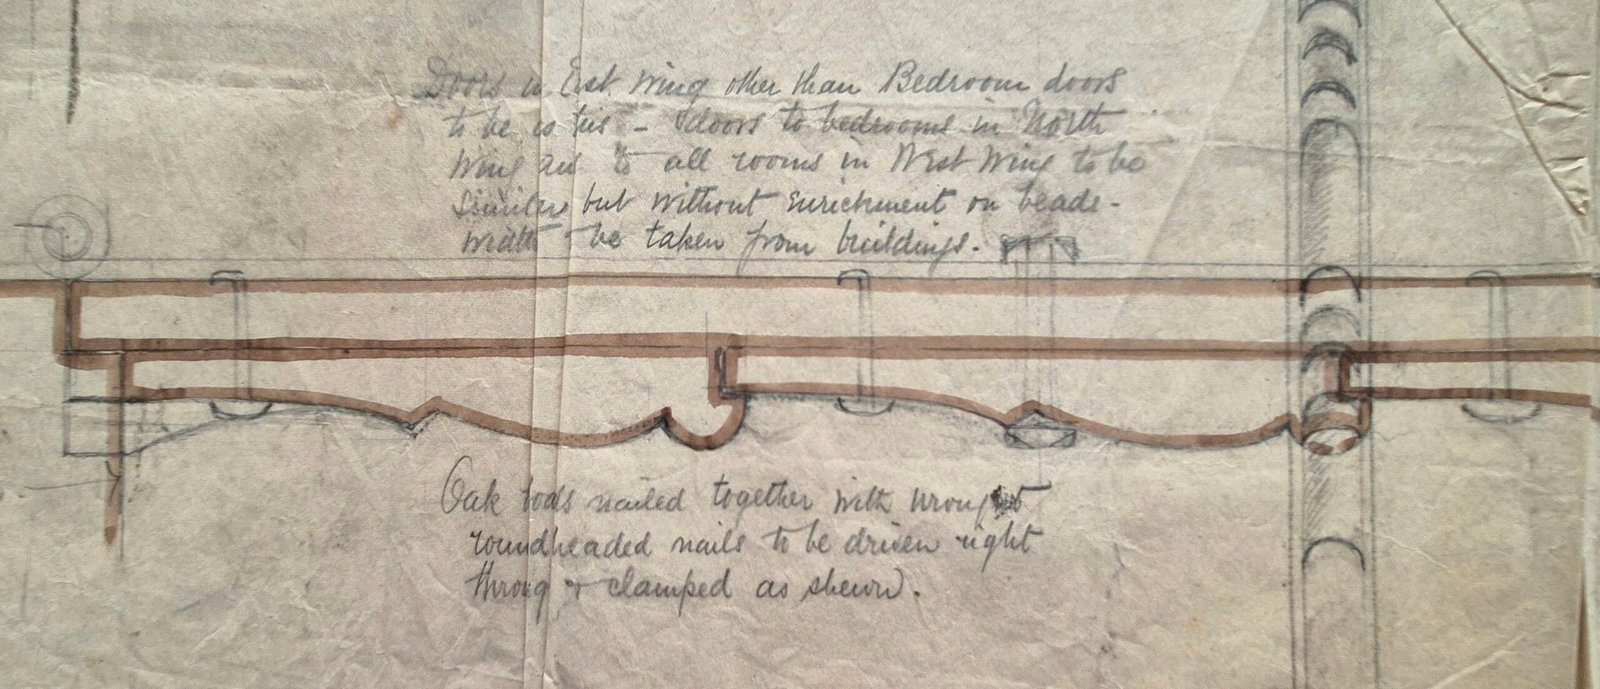 Doors in East Wing other than Bedroom doors
to be as this - doors to bedrooms in North
Wing and to all rooms in West Wing to be
Similar but without Enrichment on beads -
width to be taken from buildings.
Oak nailed together with wrought
roundheaded nails to be driven right
throug & clamped as shewn.